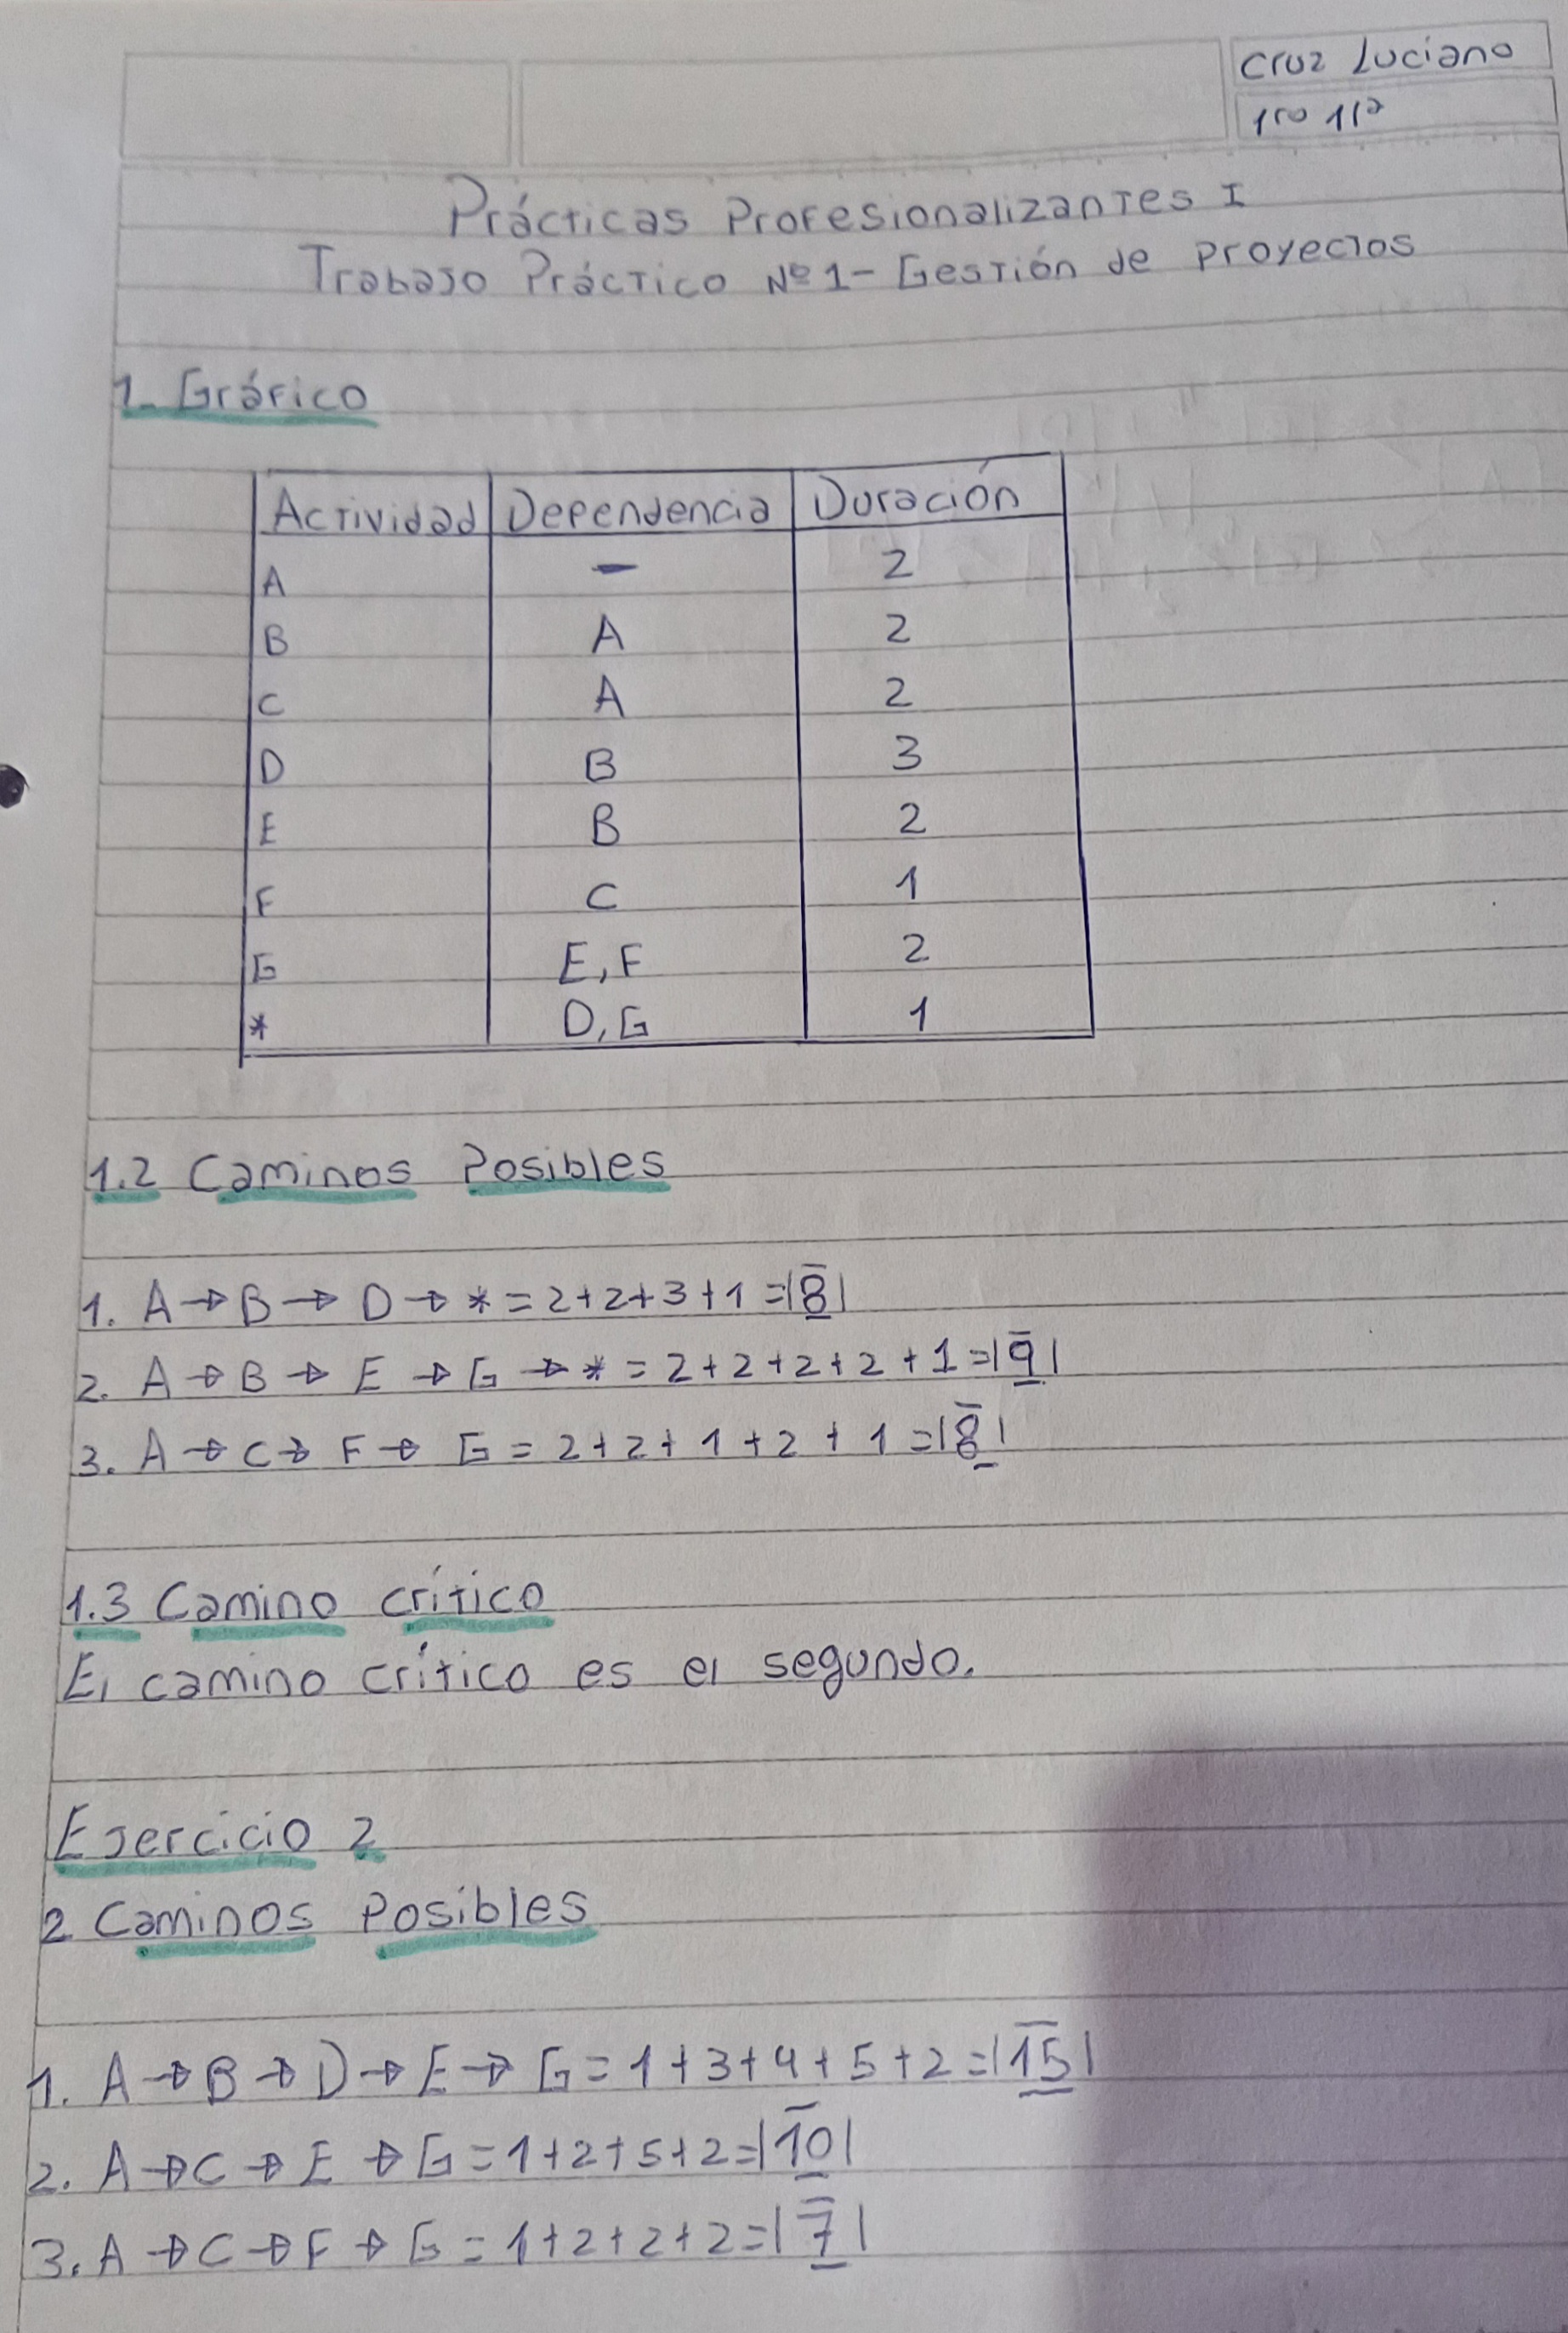 Cruz Luciano
1ro 11ª
Prácticas Profesionalizantes I
Trabajo Práctico Nº1- Gestión de proyectos
1- Gráfico
Actividad Dependencia Duración
A - 2
B A 2
C A 2
D B 3
E B 2
F C 1
G E,F 2
* D,G 1
1.2 Caminos Posibles
1. A→B→D→* = 2+2+3+1=|8|
2. A→B→E→G→* = 2+2+2+2+1=|9|
3. A→C→F→G = 2+2+1+2+1=|8|
1.3 Camino crítico
El camino crítico es el segundo.
Ejercicio 2
2 Caminos Posibles
1. A→B→D→E→G=1+3+4+5+2=|15|
2. A→C→E→G=1+2+5+2=|10|
3. A→C→F→G=1+2+2+2=|7|